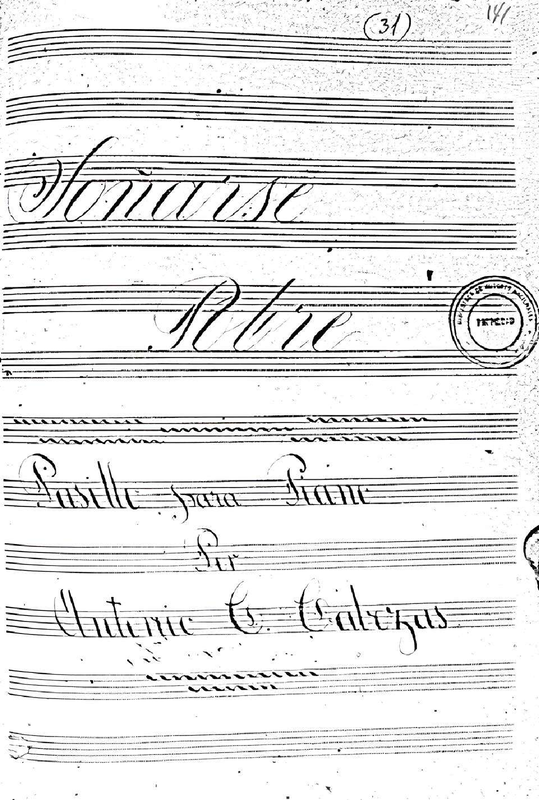 (31) 141
Soñarse
Pobre
Pasillo para Piano
Por
Antonio C. Cabezas